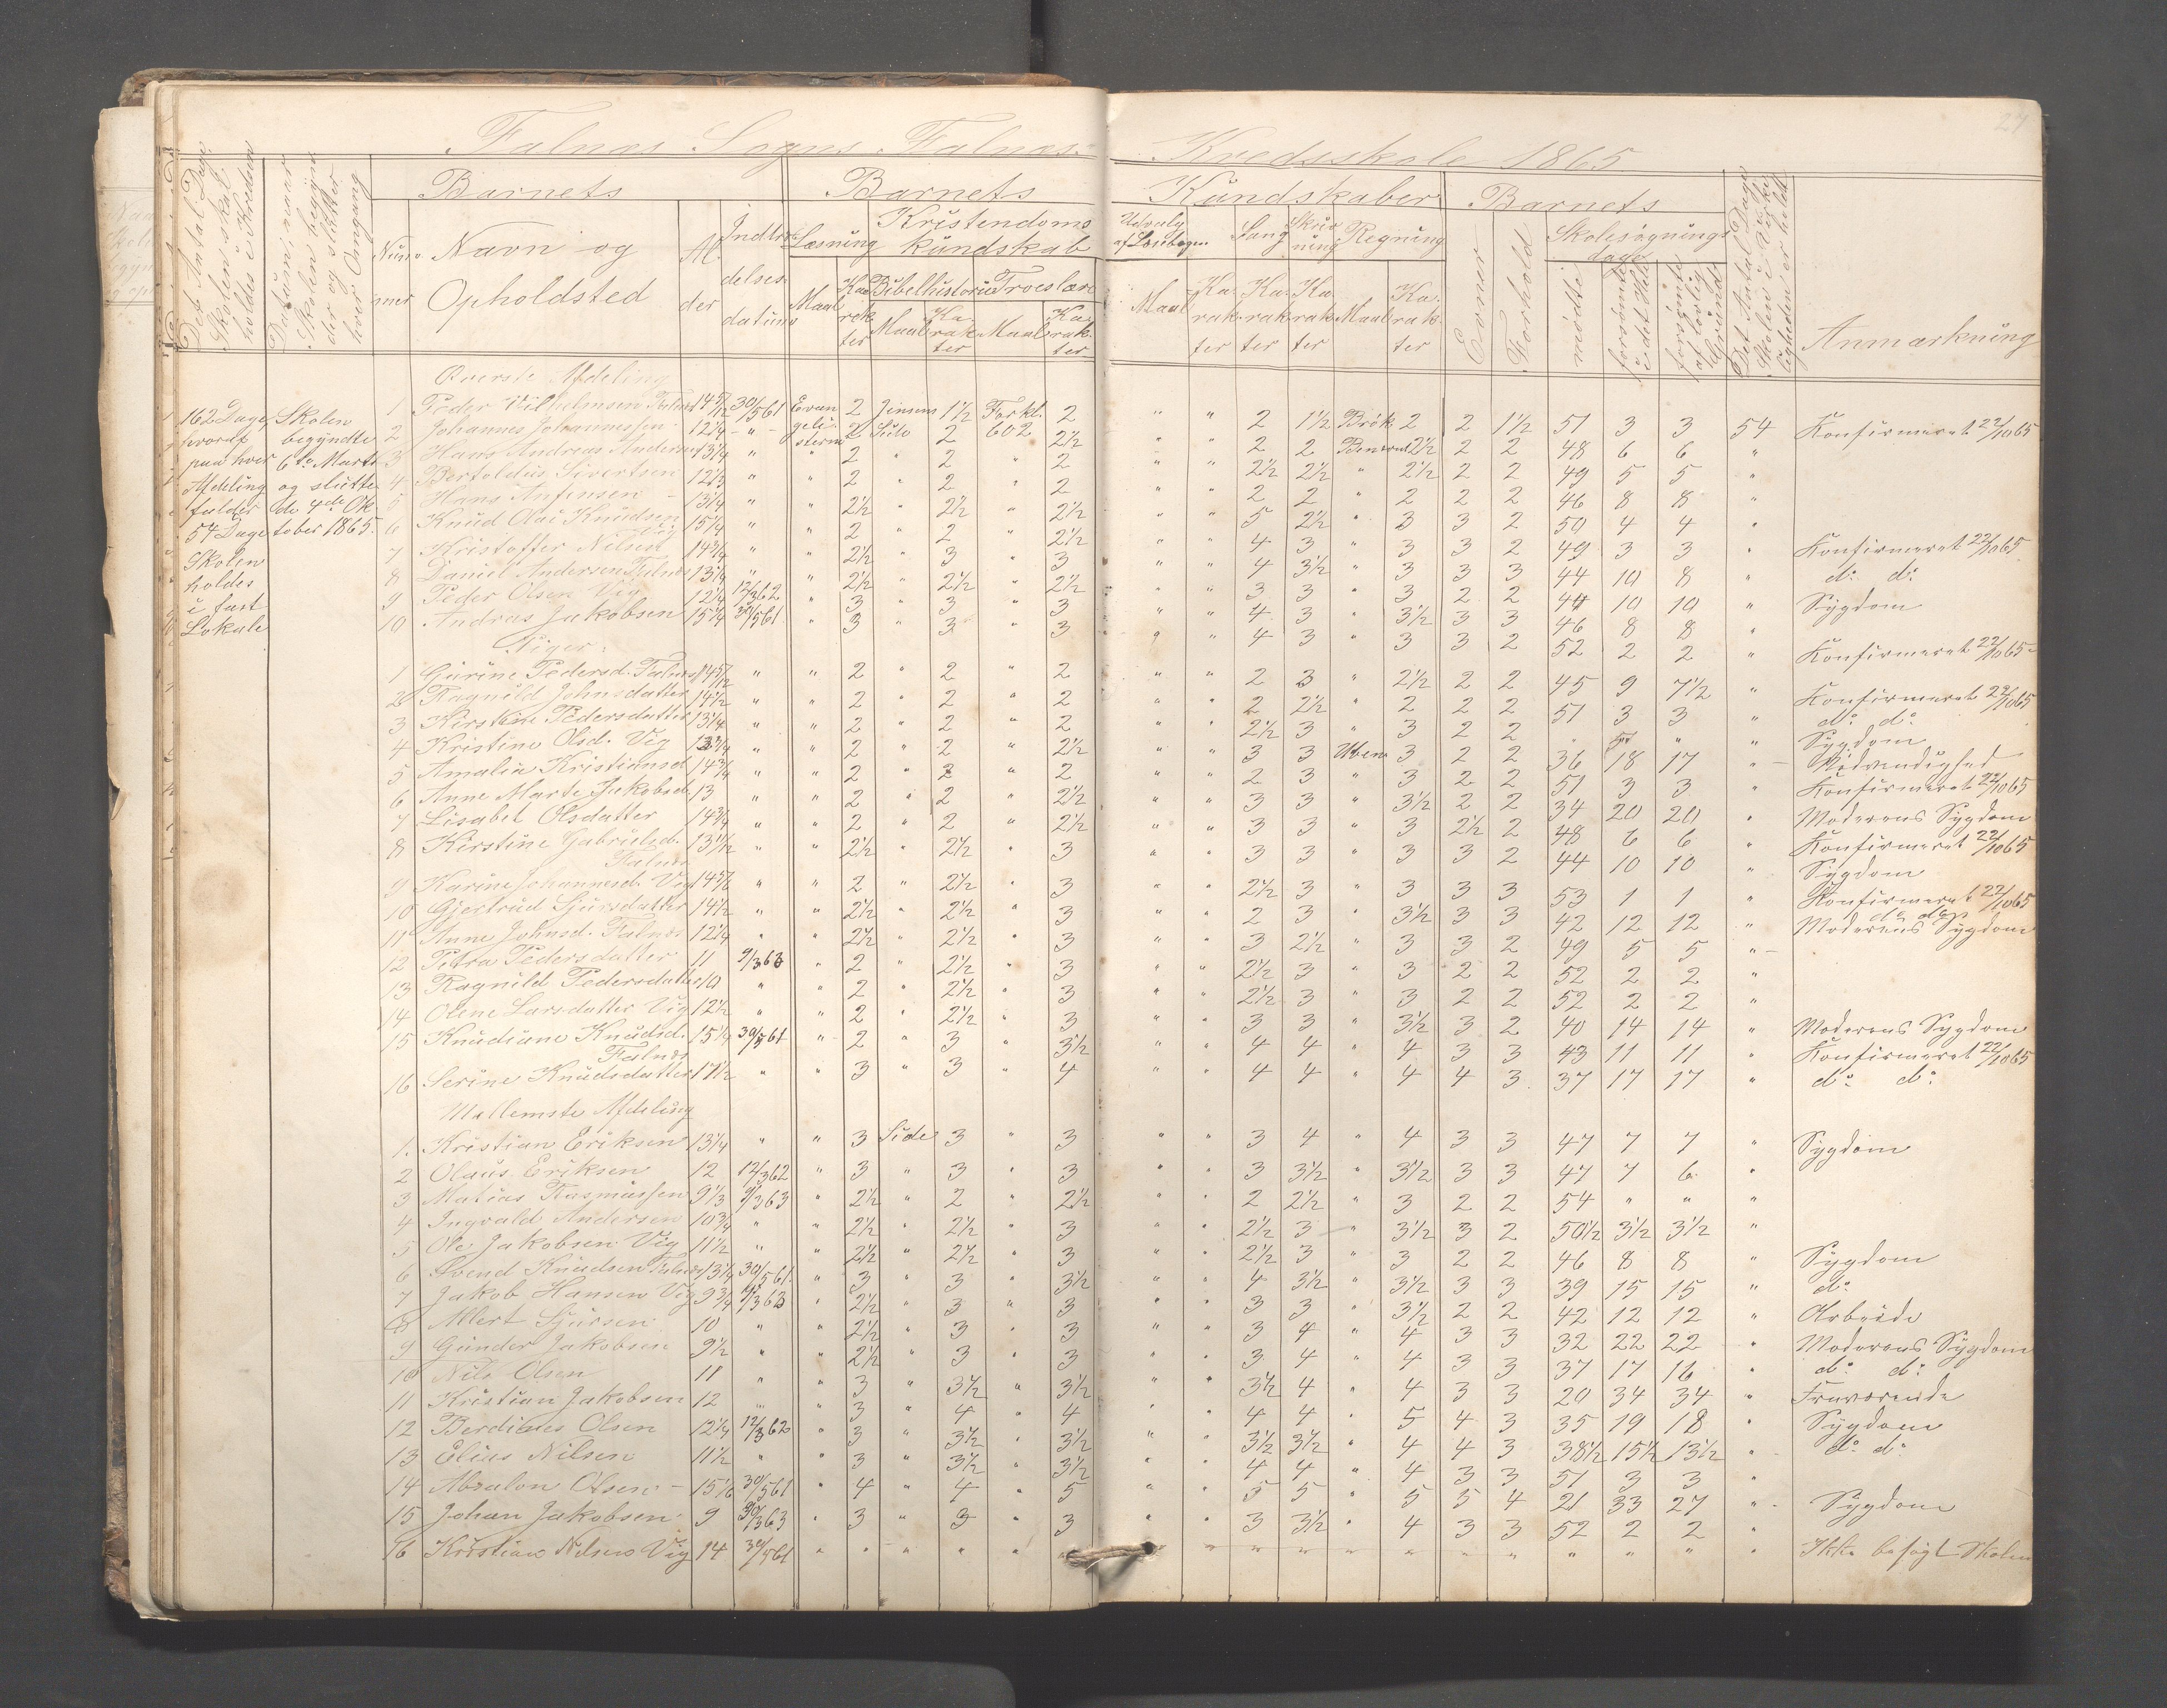 27
Falnæs Sogns Falnæs Kredsskole 1865
Det Antal Dage Skolen skal holdes i Kredsen
Datum, naar Skolen begynder og slutter hver Omgang
Barnets
Nummer
Navn og Opholdsted
Alder
Indtrædelsesdatum
Barnets Kundskaber
Læsning
Maal
Karakter
Kristendomskundskab
Bibelhistorie
Maal
Karakter
Troeslære
Maal
Karakter
Udvalg af Læsebogen
Maal
Karakter
Sang
Karakter
Skrivning
Karakter
Regning
Maal
Karakter
Barnets
Evner
Forhold
Skolesøgningsdage
mødte
forsømte i det Hele
forsømte af lovlig Grund
Det Antal Dage Skolen i Virkeligheden er holdt
Anmærkning
162 Dage
hvoraf
paa hver
Afdeling
falder
54 Dage
Skolen
holdes
i fast
Lokale
Skolen
begyndte
6te Marts
og slutte
de 4de Ok
tober 1865.
Øverste Afdeling
1 Peder Vilhelmsen Falnæs 14 5/12 30/5 61 Evan 2 Jinsens 1½ Forkl. 2 " " 2 1½ Brøk 2 2 1½ 51 3 3 54 Konfirmeret 22/10 65
2 Johannes Johannessen 12¼ " geli 2 2 602 2½ " " 2 2 2½ 2 2 48 6 6 "
3 Hans Andreas Andersen 13¼ " " 2 " 2 " 2 " " 2½ 2½ " 2½ 2 2 49 5 5 "
4 Bertoldus Sivertsen 12⅓ " " 2 " 2 " 2 " " 2 2 " 2 2 2 46 8 8 "
5 Hans Anfinsen 13¼ " " 2½ " 2½ " 2½ " " 5 2½ " 3 3 2 50 4 4 "
6 Knud Olai Knudsen 15¼ " " 2 " 2 " 2½ " " 4 3 " 3 3 2 49 3 3 " Konfirmeret 22/10 65
7 Kristoffer Nilsen Vig 14¾ " " 2½ " 3 " 3 " " 4 3½ " 3 3 3 44 10 8 " do do
8 Daniel Andersen Falnæs 13¼ " " 2½ " 2½ " 2½ " " 3 3 " 3 2 2 44 10 10 " Sygdom
9 Peder Olsen Vig 12¼ 12/3 62 " 3 " 3 " 3 " " 4 3 " 3½ 3 3 46 8 8 "
10 Andreas Jakobsen 15¼ 30/5 61 " 3 " 3 " 3 " " 4 3 " 3 3 2 52 2 2 " Konfirmeret 22/10 65
Piger:
1 Gurine Pedersd. Falnæs 14 5/12 " " 2 " 2 " 2 " " 2 3 " 2½ 2 2 45 9 7½ " Konfirmeret 22/10 65
2 Ragnild Johnsdatter 14½ " " 2 " 2 " 2 " " 2 2½ " 2 2 2 51 3 3 " do do
3 Kirstine Pedersdatter 13¼ " " 2 " 2 " 2 " " 2½ 3 " 3 2 2 " " " Sygdom
4 Kristine Olsd. Vig " " 2 " 2 " 2½ " " 3 3 Uben 3 2 2 36 18 17 " Nødvendighed
5 Amalia Kristiansd 14¾ " " 2 " 2 " 2 " " 2 3 " 3 2 2 51 3 3 " Konfirmeret 22/10 65
6 Anne Marte Jakobsd. 13 " " 2 " 2 " 2½ " " 3 3 " 3½ 2 2 34 20 20 " Moderens Sygdom
7 Lisabet Olsdatter 14¾ " " 2 " 2 " 2½ " " 3 3 " 3 2½ 2 48 6 6 " Konfirmeret 22/10 65
8 Kirstine Gabrielsd. Falnæs 13 1/12 " " 2½ " 2½ " 3 " " 3 3 " 3 3 2 44 10 10 " Sygdom
9 Karine Johannesd. Vig 14 5/6 " " 2 " 2½ " 3 " " 2½ 3 " 3 3 3 53 1 1 " Konfirmeret 22/10 65
10 Gjertrud Sjursdatter 14½ " " 2½ " 2½ " 3 " " 2 3 " 3½ 3 3 42 12 12 " do do
Moderens Sygdom
11 Anne Johnsd. Falnæs 12¼ " " 2½ " 2½ " 3 " " 3 2½ " 3 3 2 49 5 5 "
12 Petra Pedersdatter 11 9/3 63 " 2 " 2½ " 3 " " 2½ 3 " 3 2 2 52 2 2 "
13 Ragnild Pedersdatter 10 " " 2 " 2½ " 3 " " 2½ 3 " 3 2 2 52 2 2 "
14 Oline Larsdatter Vig 12½ " " 2 " 2½ " 3 " " 3 3 " 3½ 3 2 40 14 14 " Moderens Sygdom
15 Knudiane Knudsd. Falnæs 15¼ 30/5 61 " 2 " 3 " 3½ " " 4 4 " 4 3 3 43 11 11 " Konfirmeret 22/10 65
16 Serine Knudsdatter 17½ " " 3 " 3 " 4 " " 4 4 " 4 4 3 37 17 17 " do do
Mellemste Afdeling
1. Kristian Eriksen 13¼ " " 3 Side 3 " 3 " " 3 4 " 4 3 3 47 7 7 " Sygdom
2 Olaus Eriksen 12 12/3 62 " 3 " 3 " 3 " " 3 3½ " 3½ 3 3 47 7 6 "
3 Matias Rasmussen 9⅓ 9/3 63 " 2½ " 2 " 2½ " " 2 2½ " 3 2 2 54 " " "
4 Ingvald Andersen 10¾ " " 2½ " 2½ " 3 " " 2½ 3 " 3½ 3 2 50½ 3½ 3½ "
5 Ole Jakobsen Vig 11½ " " 2½ " 2½ " 3 " " 2½ 3 " 3 2 2 46 8 8 " Sygdom
6 Svend Knudsen Falnæs 13¼ 30/5 61 " 3 " 3 " 3½ " " 4 3½ " 3½ 3 3 39 15 15 " do
7 Jakob Hansen Vig 9¾ 9/3 63 " 2½ " 3 " 3 " " 3 3 " 3½ 2 2 42 12 12 " Arbeide
8 Allert Sjursen 10 " " 2½ " 3 " 3 " " 3 4 " 4 3 3 32 22 22 " Moderens Sygdom
9 Gunder Jakobsen 9½ " " 2½ " 3 " 3 " " 3 4 " 4 3 3 37 17 16 " do do
10 Nils Olsen 11 " " 3 " 3½ " 3½ " " 3½ 4 " 4 3 3 20 34 34 " Fraværende
11 Kristian Jakobsen 12 " " 3 " 4 " 4 " " 4 4 " 5 4 3 35 19 18 " Sygdom
12 Berdines Olsen 12¼ 12/3 62 " 3 " 3½ " 3½ " " 3½ 3½ " 4 4 3 38½ 15½ 13½ " do do
13 Elias Nilsen 11½ " " 3 " 3½ " 3½ " " 4 4 " 4 3 3 51 3 3 "
14 Absalon Olsen 15⅙ 30/5 61 " 4 " 4 " 5 " " 5 5 " 5 5 4 21 33 27 " Sygdom
15 Johan Jakobsen 9 63 " 3 " 3 " 3 " " 3 3½ " 4 3 3 52 2 2 "
16 Kristian Nilsen Vig 14 30/5 61 " " " " " " " " " " " " " " " " " " Ikke besøgt Skolen